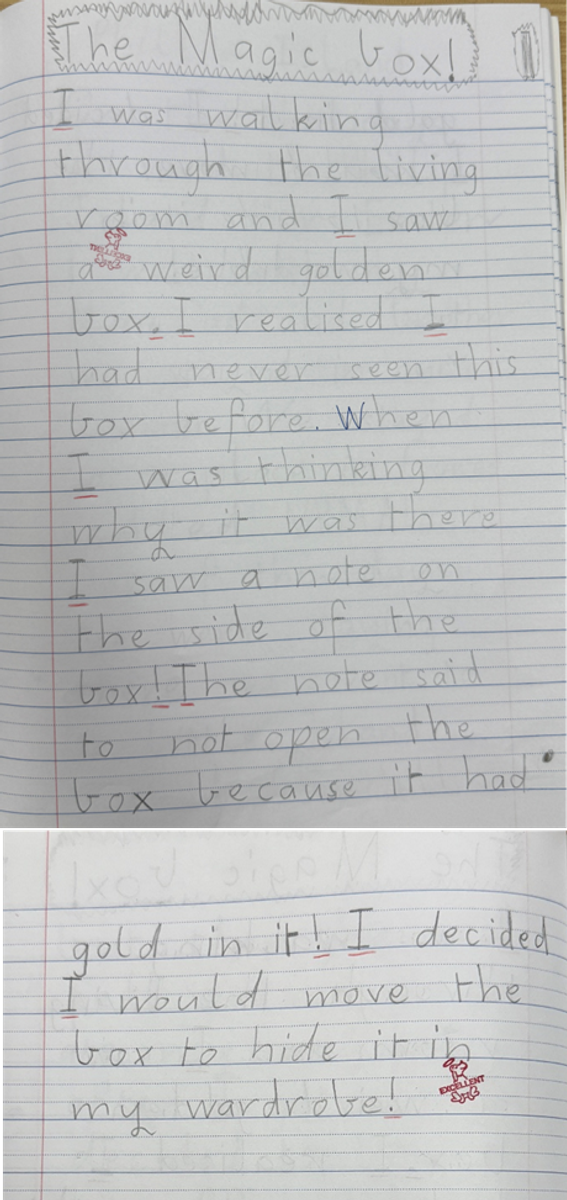 The Magic box!
I was walking
through the living
room and I saw
EXCELLENT
a weird golden
box. I realised I
had never seen this
box before. When
I was thinking
why it was there
I saw a note on
the side of the
box! The note said
to not open the
box because it had
gold in it! I decided
I would move the
box to hide it in
my wardrobe!
EXCELLENT